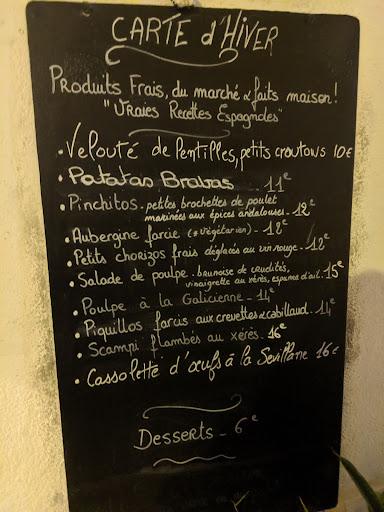 CARTE d'HIVER
Produits Frais, du marché & faits maison!
"Vraies Recettes Espagnoles"
• Velouté de lentilles, petits croutons 10€
• Patatas Bravas 11€
• Pinchitos. petites brochettes de poulet
marinées aux épices andalouses - 12€
• Aubergine farcie (végétarien) - 12€
• Petits chorizos frais déglacés au vin rouge. 12€
• Salade de poulpe. brunoise de crudités,
vinaigrette au xérès, espuma d'ail. 15€
• Poulpe à la Galicienne - 14€
• Piquillos farcis aux crevettes & cabillaud. 14€
• Scampi flambés au xérès. 16€
• Cassolette d'œufs à la Sevillane 16€
Desserts - 6€